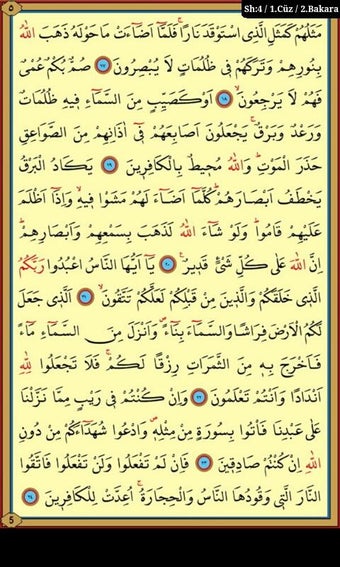 Sh:4 / 1.Cüz / 2.Bakara
٥
مَثَلُهُمْ كَمَثَلِ الَّذِي اسْتَوْقَدَ نَارًاۚ فَلَمَّٓا اَضَٓاءَتْ مَا حَوْلَهُ ذَهَبَ اللّٰهُ
بِنُورِهِمْ وَتَرَكَهُمْ فٖي ظُلُمَاتٍ لَا يُبْصِرُونَ ﴿١٧﴾ صُمٌّ بُكْمٌ عُمْيٌ
فَهُمْ لَا يَرْجِعُونَۙ ﴿١٨﴾ اَوْ كَصَيِّبٍ مِنَ السَّمَٓاءِ فٖيهِ ظُلُمَاتٌ
وَرَعْدٌ وَبَرْقٌۚ يَجْعَلُونَ اَصَابِعَهُمْ فٖٓي اٰذَانِهِمْ مِنَ الصَّوَاعِقِ
حَذَرَ الْمَوْتِؕ وَاللّٰهُ مُحٖيطٌ بِالْكَافِرٖينَ ﴿١٩﴾ يَكَادُ الْبَرْقُ
يَخْطَفُ اَبْصَارَهُمْؕ كُلَّمَٓا اَضَٓاءَ لَهُمْ مَشَوْا فٖيهِۙ وَاِذَٓا اَظْلَمَ
عَلَيْهِمْ قَامُواؕ وَلَوْ شَٓاءَ اللّٰهُ لَذَهَبَ بِسَمْعِهِمْ وَاَبْصَارِهِمْؕ
اِنَّ اللّٰهَ عَلٰى كُلِّ شَيْءٍ قَدٖيرٌ ﴿٢٠﴾ يَٓا اَيُّهَا النَّاسُ اعْبُدُوا رَبَّكُمُ
الَّذٖي خَلَقَكُمْ وَالَّذٖينَ مِنْ قَبْلِكُمْ لَعَلَّكُمْ تَتَّقُونَۙ ﴿٢١﴾ اَلَّذٖي جَعَلَ
لَكُمُ الْاَرْضَ فِرَاشًا وَالسَّمَٓاءَ بِنَٓاءًۖ وَاَنْزَلَ مِنَ السَّمَٓاءِ مَٓاءً
فَاَخْرَجَ بِهٖ مِنَ الثَّمَرَاتِ رِزْقًا لَكُمْۚ فَلَا تَجْعَلُوا لِلّٰهِ
اَنْدَادًا وَاَنْتُمْ تَعْلَمُونَ ﴿٢٢﴾ وَاِنْ كُنْتُمْ فٖي رَيْبٍ مِمَّا نَزَّلْنَا
عَلٰى عَبْدِنَا فَأْتُوا بِسُورَةٍ مِنْ مِثْلِهٖࣕ وَادْعُوا شُهَدَٓاءَكُمْ مِنْ دُونِ
اللّٰهِ اِنْ كُنْتُمْ صَادِقٖينَ ﴿٢٣﴾ فَاِنْ لَمْ تَفْعَلُوا وَلَنْ تَفْعَلُوا فَاتَّقُوا
النَّارَ الَّتٖي وَقُودُهَا النَّاسُ وَالْحِجَارَةُۚ اُعِدَّتْ لِلْكَافِرٖينَ ﴿٢٤﴾
5